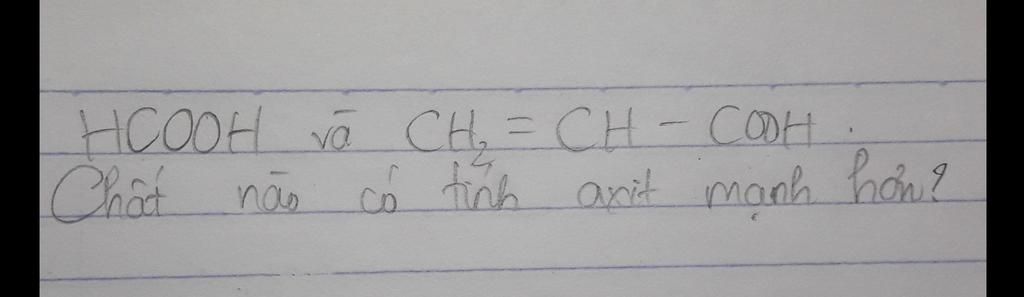 HCOOH và CH₂ = CH - COOH.
Chất nào có tính axit mạnh hơn?